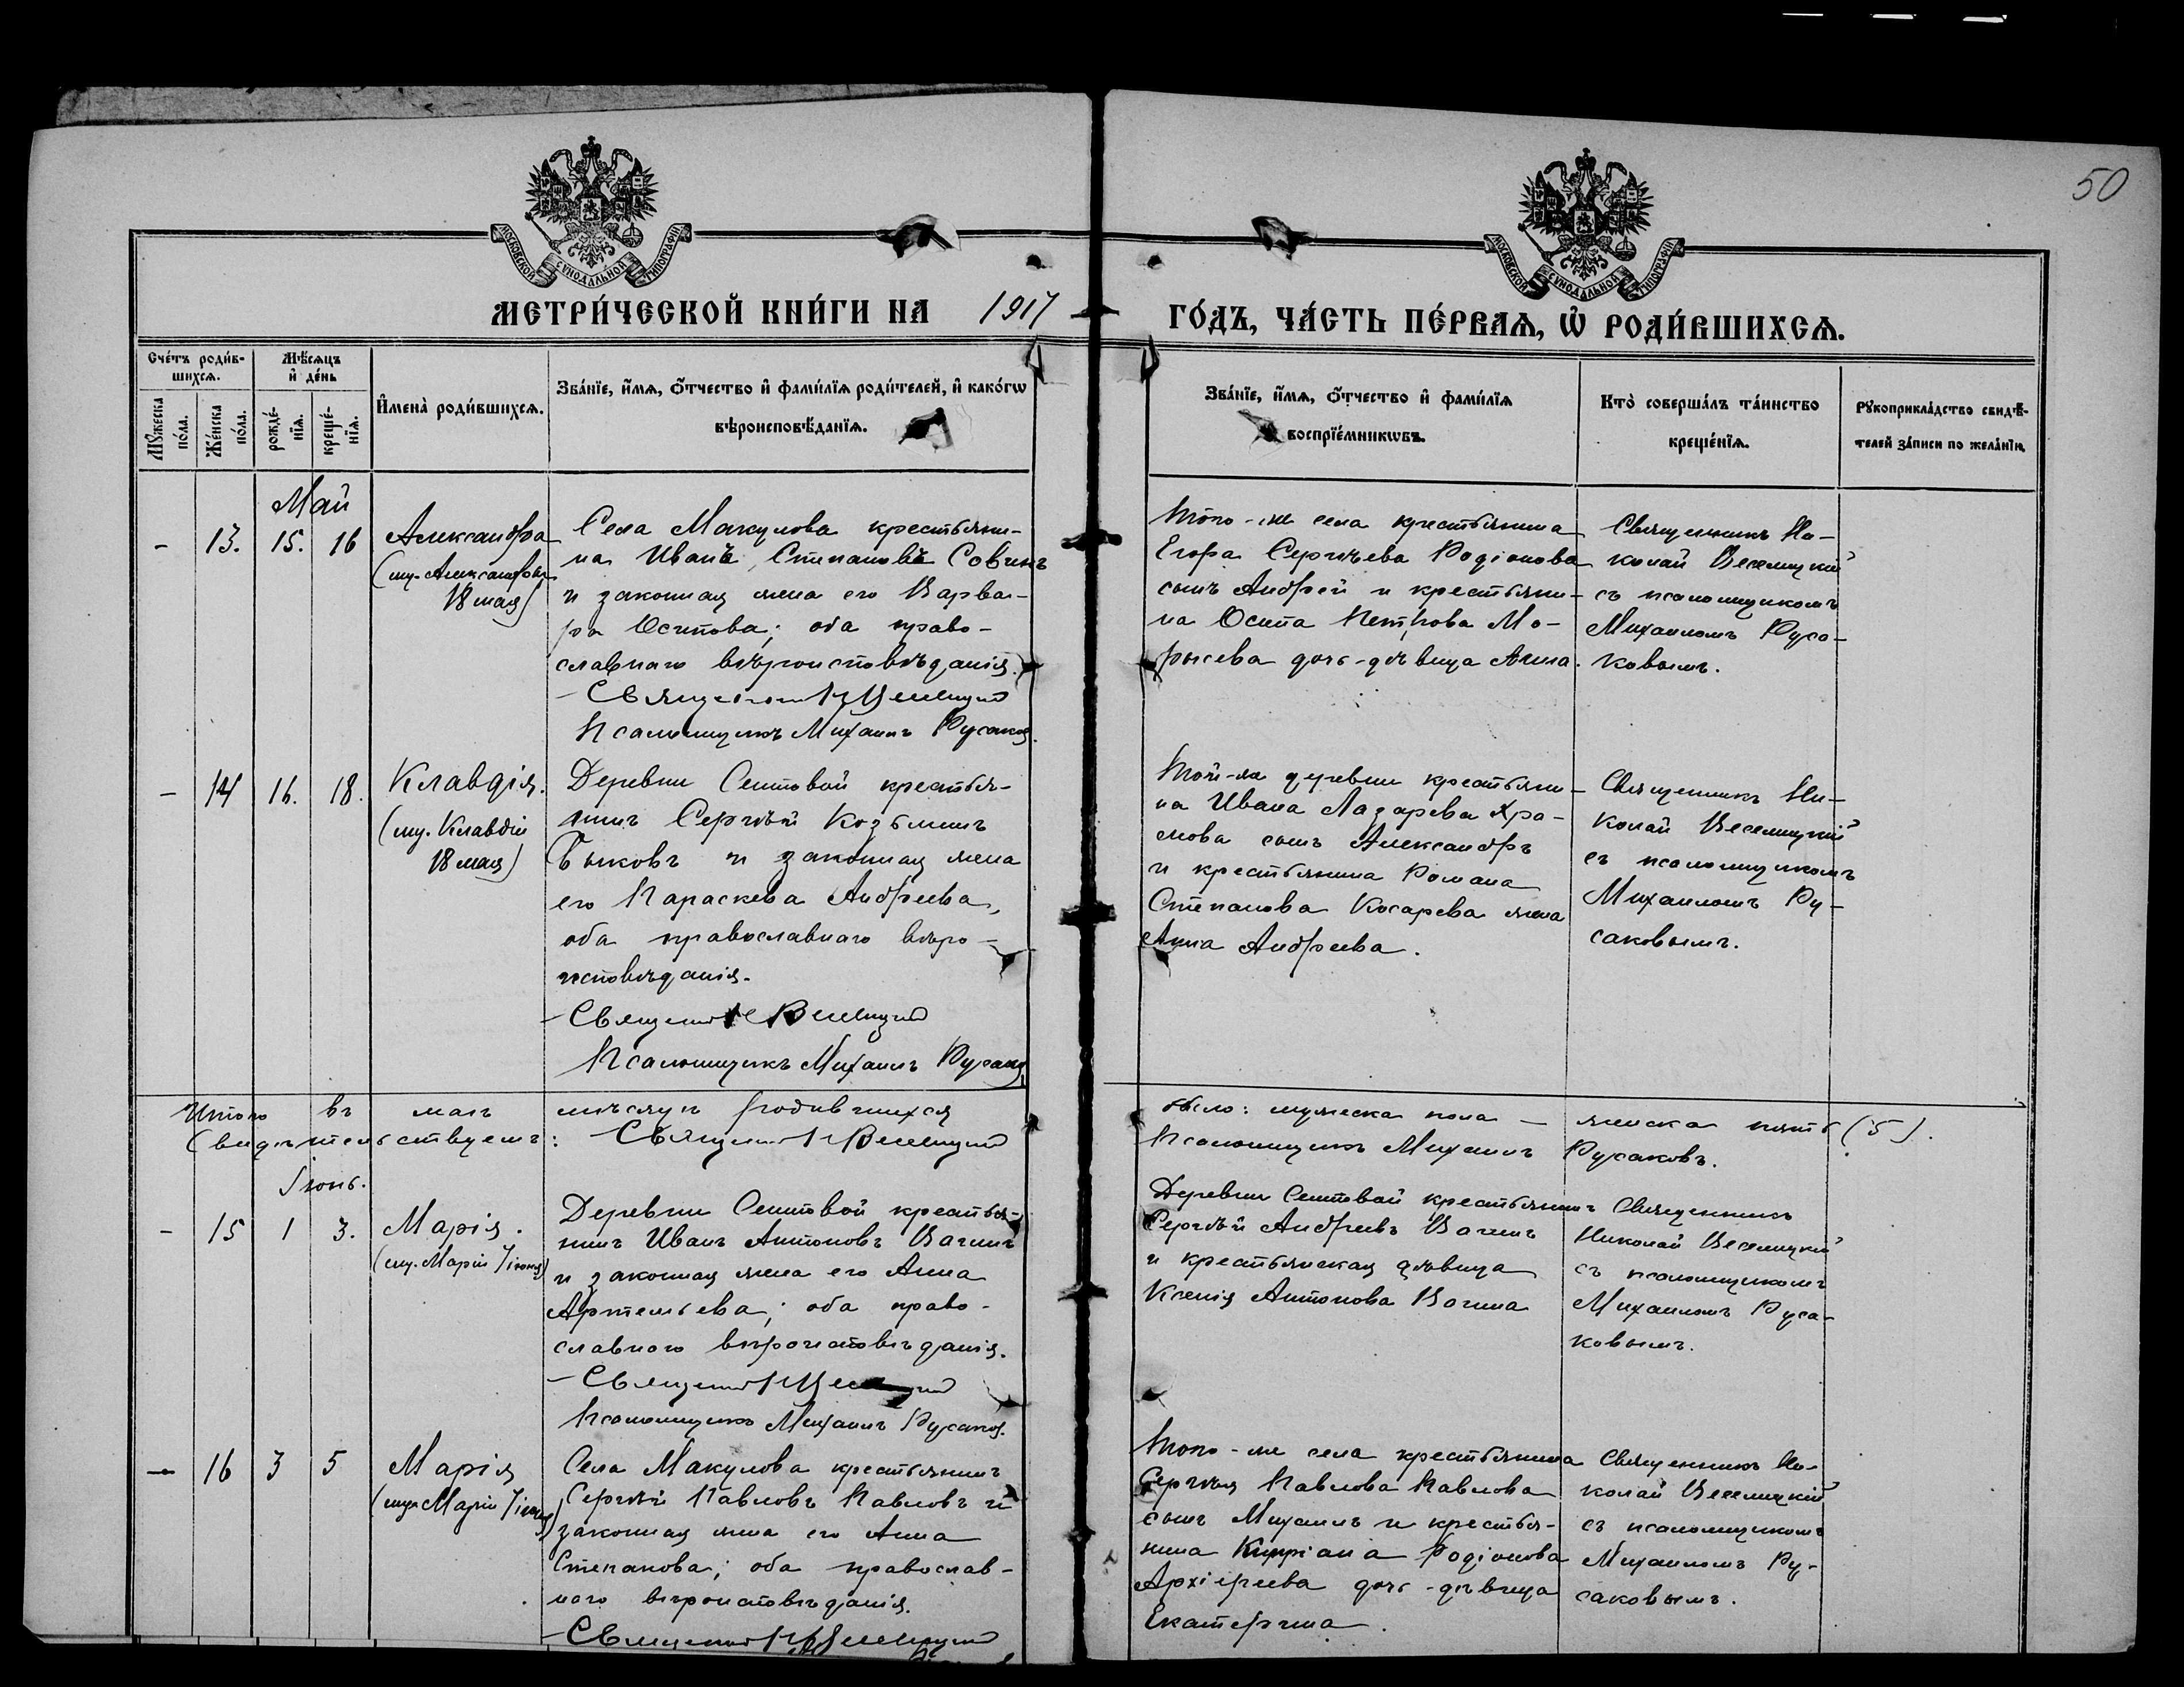 50
МОСКОВСКОЙ СѴНОДАЛЬНОЙ ТИПОГРАФІИ
МОСКОВСКОЙ СѴНОДАЛЬНОЙ ТИПОГРАФІИ
МЕТРИ́ЧЕСКОЙ КНИ́ГИ НА 1917 ГО́ДЪ, ЧА́СТЬ ПЕ́РВАѦ, Ѡ҆ РОДИ́ВШИХСѦ.
Сче́тъ роди́в-
шихсѧ.
Мѣ́сѧцъ
и҆ де́нь
Мꙋ́жеска
по́ла.
Же́нска
по́ла.
рожде́-
нїѧ.
креще́-
нїѧ.
И҆мена̀ роди́вшихсѧ.
Зва́нїе, и҆́мѧ, ѻ҆́тчество и҆ фами́лїѧ роди́телей, и҆ како́гѡ
вѣроисповѣ́данїѧ.
Зва́нїе, и҆́мѧ, ѻ҆́тчество и҆ фами́лїѧ
воспрїе́мникѡвъ.
Кто̀ соверша́лъ та́инство
креще́нїѧ.
Рꙋкоприкла́дство свидѣ́-
телей за́писи по жела́нїю.
Май
- 13. 15. 16
Александра
(му. Александры
18 мая)
Села Макулова крестьяни-
на Иванъ Степановъ Совинъ
и законная жена его Варва-
ра Осипова; оба право-
славнаго вѣроисповѣданія.
Священник Н Веселицкий
Псаломщикъ Михаилъ Русаков.
Того-же села крестьянина
Егора Сергѣева Родіонова
сынъ Андрей и крестьяни-
на Осипа Петрова Мо-
рысева дочь-дѣвица Анна.
Священникъ Ни-
колай Веселицкій
съ псаломщикомъ
Михаиломъ Руса-
ковымъ.
- 14 16. 18.
Клавдія.
(му. Клавдіи
18 мая)
Деревни Сеитовой крестья-
нинъ Сергѣй Козьминъ
Быковъ и законная жена
его Параскева Андреева,
оба православнаго вѣро-
исповѣданія.
Священник Н Веселицкий
Псаломщикъ Михаилъ Русаков
Той-же деревни крестьяни-
на Ивана Лазарева Хра-
мова сынъ Александръ
и крестьянина Романа
Степанова Косарева жена
Анна Андреева.
Священникъ Ни-
колай Веселицкій
съ псаломщикомъ
Михаиломъ Ру-
саковымъ.
Итого въ маѣ мѣсяцѣ родившихся было: мужеска пола — женска пять (5).
Свидѣтельствуемъ: Священник Н Веселицкий Псаломщикъ Михаилъ Русаковъ.
Іюнь.
- 15 1 3.
Марія.
(му. Маріи 7 іюня)
Деревни Сеитовой крестья-
нинъ Иванъ Антоновъ Вагинъ
и законная жена его Анна
Артемьева; оба право-
славного вѣроисповѣданія.
Священник Н Веселицкий
Псаломщикъ Михаилъ Русаков.
Деревни Сеитовой крестьянинъ
Сергѣй Андреевъ Вагинъ
и крестьянская дѣвица
Ксенія Антонова Вагина
Священникъ
Николай Веселицкій
съ псаломщикомъ
Михаиломъ Руса-
ковымъ.
- 16 3 5
Марія
(му. Маріи 7 іюня)
Села Макулова крестьянинъ
Сергѣй Павловъ Павловъ и
законная жена его Анна
Степанова; оба православ-
наго вѣроисповѣданія.
Священник Н Веселицкий
Того-же села крестьянина
Сергѣя Павлова Павлова
сынъ Михаилъ и крестья-
нина Кипріана Родіонова
Архіереева дочь-дѣвица
Екатерина.
Священникъ Ни-
колай Веселицкій
съ псаломщикомъ
Михаиломъ Ру-
саковымъ.